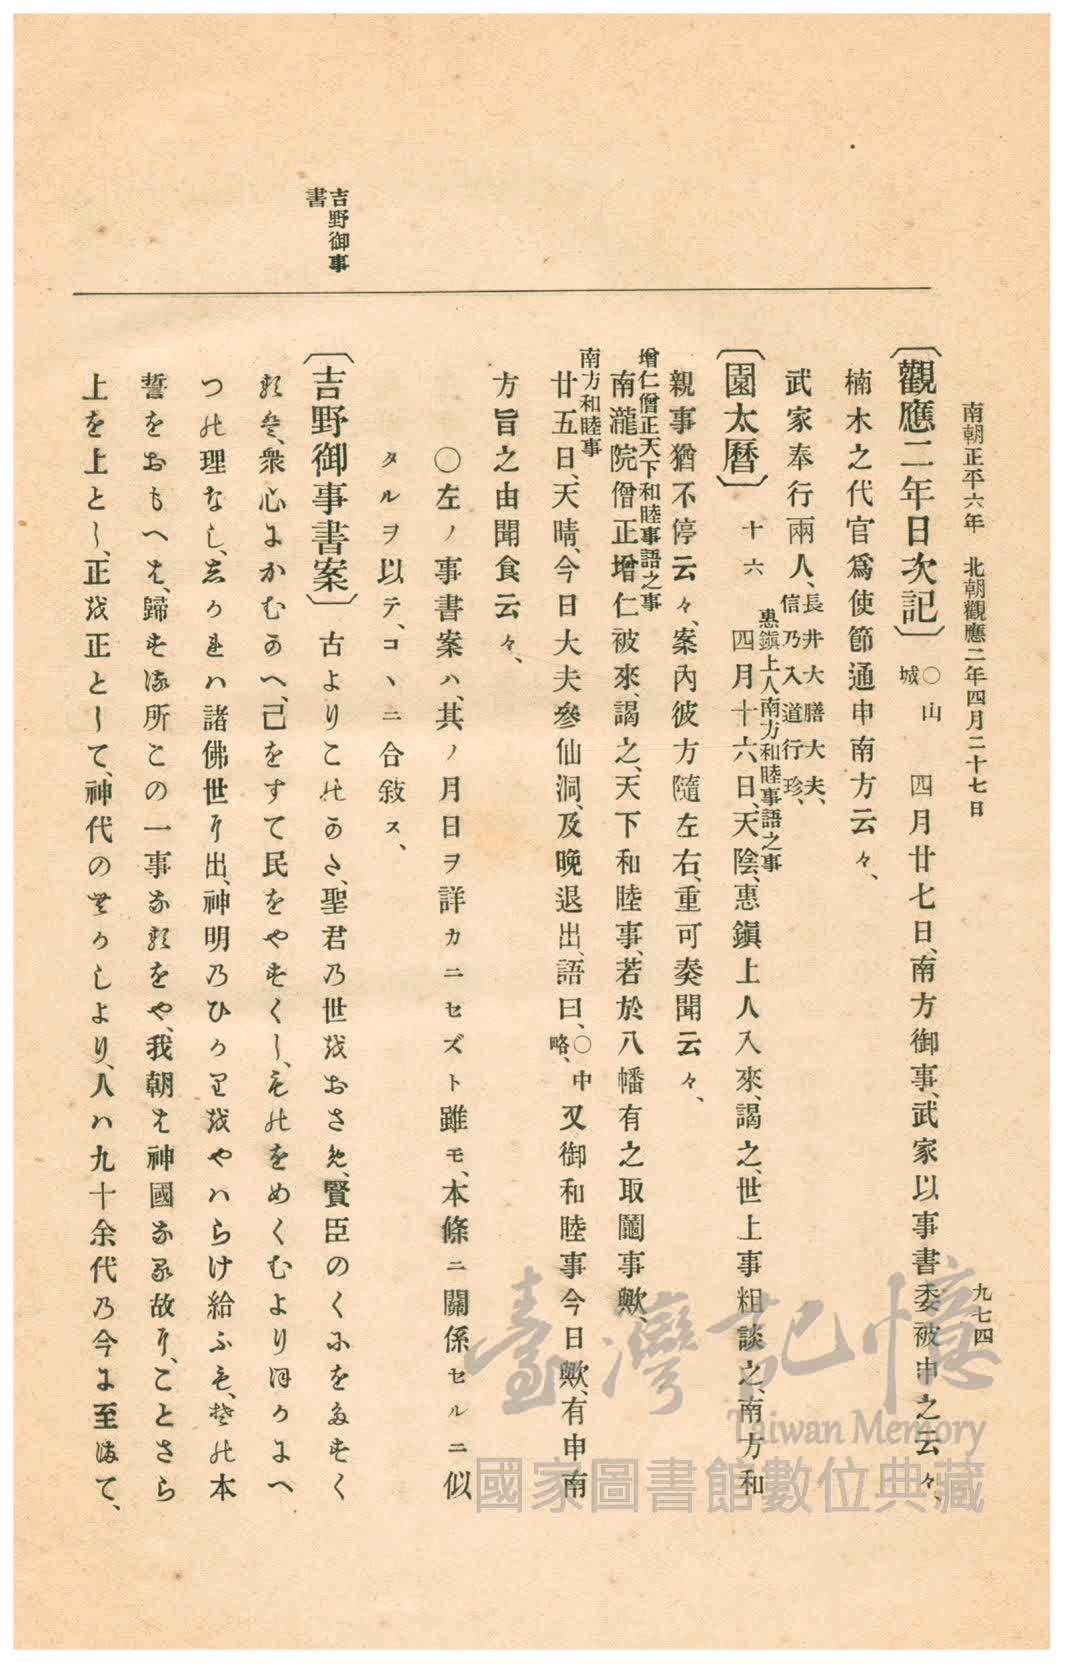 南朝正平六年 北朝觀應二年四月二十七日
九七四
〔觀應二年日次記〕 ○山城 四月廿七日、南方御事、武家以事書委被申之云々、
楠木之代官爲使節通申南方云々、
武家奉行兩人、長井大膳大夫、信乃入道行珍、
〔園太曆〕 十六 惠鎭上人南方和睦事語之事 四月十六日、天陰、惠鎭上人入來、謁之、世上事粗談之、南方和
親事猶不停云々、案內彼方隨左右、重可奏聞云々、
增仁僧正天下和睦事語之事
南瀧院僧正增仁被來、謁之、天下和睦事、若於八幡有之取鬮事歟、
南方和睦事
廿五日、天晴、今日大夫參仙洞、及晚退出、語曰、○中略、又御和睦事今日歟、有申南
方旨之由聞食云々、
○左ノ事書案ハ、其ノ月日ヲ詳カニセズト雖モ、本條ニ關係セルニ似
タルヲ以テ、コヽニ合敍ス、
吉野御事書
〔吉野御事書案〕 古よりこのかた、聖君乃世をおさめ、賢臣のくにをたすく
るは、衆心にかむかへ、己をすて民をやすくし、ものをめくむよりほかにへ
つの理なし、しかれハ諸佛世に出、神明乃ひかりをやハらけ給ふも、その本
誓をおもへは、歸する所この一事なるをや、我朝は神國なる故に、ことさら
上を上とし、正を正として、神代のむかしより、人ハ九十余代乃今に至まて、
臺灣記憶
Taiwan Memory
國家圖書館數位典藏